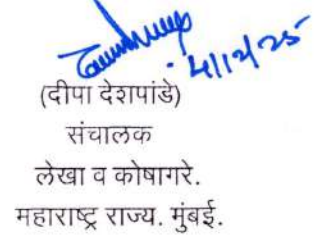 4/12/25
(दीपा देशपांडे)
संचालक
लेखा व कोषागरे.
महाराष्ट्र राज्य. मुंबई.